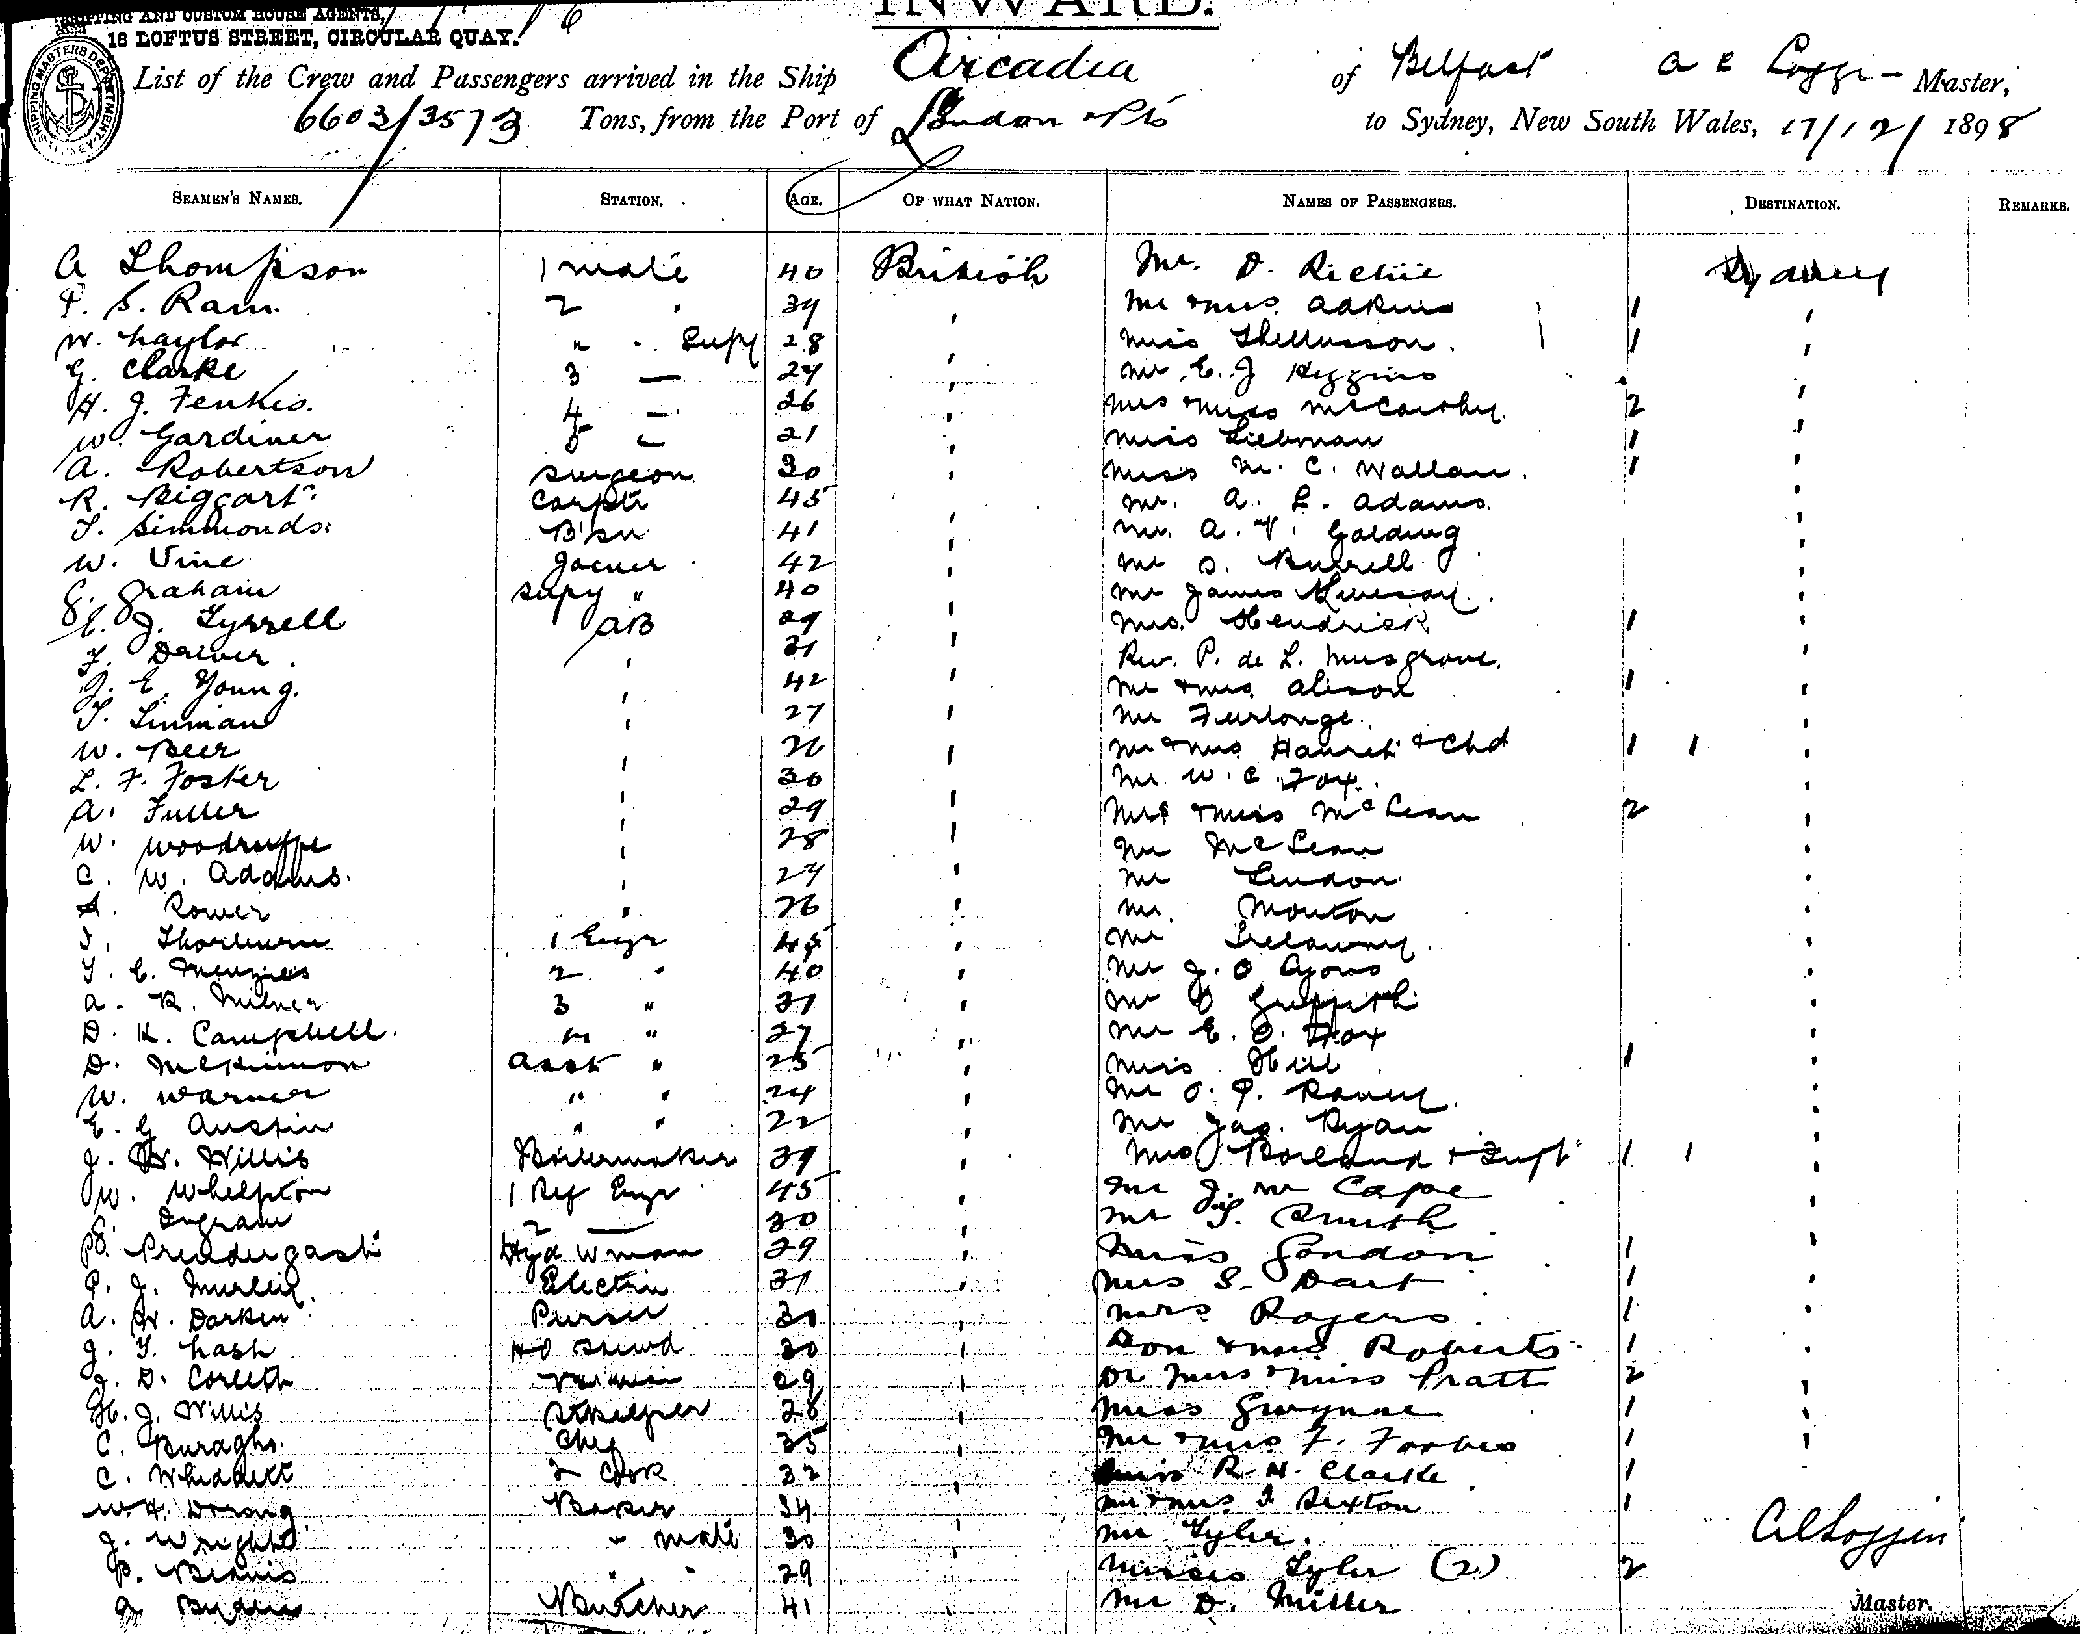 SHIPPING AND CUSTOM HOUSE AGENTS,
18 LOFTUS STREET, CIRCULAR QUAY.
INWARD.
SHIPPING MASTERS DEPARTMENT
List of the Crew and Passengers arrived in the Ship Arcadia of Belfast A E Master,
6603/3573 Tons, from the Port of London & Pts to Sydney, New South Wales, 17/12/1898
SEAMEN'S NAMES. STATION. AGE. OF WHAT NATION. NAMES OF PASSENGERS. DESTINATION. REMARKS.
A Thompson 1 mate 40 British Mr. D. Richie Sydney
P. S. Ram. 2 " 39 " Mr & Mrs. Adkins 1 "
W. Naylor " " Supy 28 " Miss Thellusson. 1 "
G. Clarke 3 — 27 " Mr. E. J Higgins "
H. J. 4 — 26 " Mrs & Miss McCarthy. 2 "
W. Gardiner 5 — 21 " Miss Liebman 1 "
A. Robertson Surgeon 30 " Miss M. C. Wallan. 1 "
R. Biggart. Carptr 45 " Mr. A. L. Adams. "
T. Simmonds. B'sn 41 " Mr. A. V. Golding "
W. Vine Joiner 42 " Mr S. Burrell "
G. Graham Supy " 40 " Mr James "
E. J. Tyrrell AB 29 " Mrs. Hendrick 1 "
F. Driver. " 31 " Rev. P. de L. Musgrove. "
J. E. Young. " 42 " Mr & Mrs Alison 1 "
T. Linman " 27 " Mr Furlonge. "
W. Beer " 26 " Mr & Mrs & Chd 1 1 "
L. F. Foster " 30 " Mr W. C. Fox. "
A. Fuller " 29 " Mrs & Miss McLean 2 "
W. Woodruffe " 28 " Mr McLean "
C. W. Adams. " 27 " Mr Lindon "
Rower " 26 " Mr. Mouton "
Thorburn 1 Engr 45 " Mr Trelawny. "
T. E. Menzies 2 " 40 " Mr J. O "
A. R. Milner 3 " 31 " Mr Griffith "
D. K. Campbell. 4 " 27 " Mr E. "
D. McKinnon Asst " 25 " Miss Hill 1 "
W. Warner " " 24 " Mr O. P. "
E. G Austin " " 22 " Mr Jas. Ryan "
J. W. Willis Boilermaker 39 " Mrs & Inft 1 1 "
W. Whelpton 1 Ref Engr 45 " Mr J. M Cape "
Ingram 2 — 30 " Mr S. Smith "
Prendergast Hyd W man 29 " Miss Gondon 1 "
P. J. Electrn 31 " Mrs S. Dart 1 "
A. W. Darken Purser 30 " Mrs Rogers 1 "
J. T. Nash HD Stewd 30 " Don & Mrs Roberts 1 "
J. D. Corleth 29 " Dr Mrs & Miss Pratt 2 "
H. J. Willis Stkeeper 28 " Miss Gwynne 1 "
C. Chef 35 " Mr & Mrs F. Forbes 1 "
C. 2 Cook 32 " Miss R. H. Clarke 1
W. H. Baker 34 " Mr & Mrs Sexton 1
J. Wright " mate 30 " Mr Tyler.
" " 29 " Misses Tyler (2) 2
Butcher 41 " Mr D. Miller
Master.